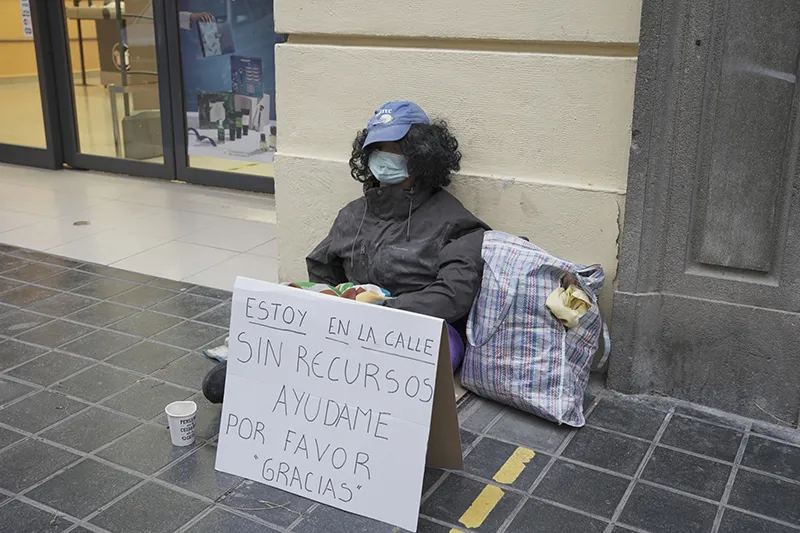 ESTOY EN LA CALLE
SIN RECURSOS
AYUDAME
POR FAVOR
"GRACIAS"